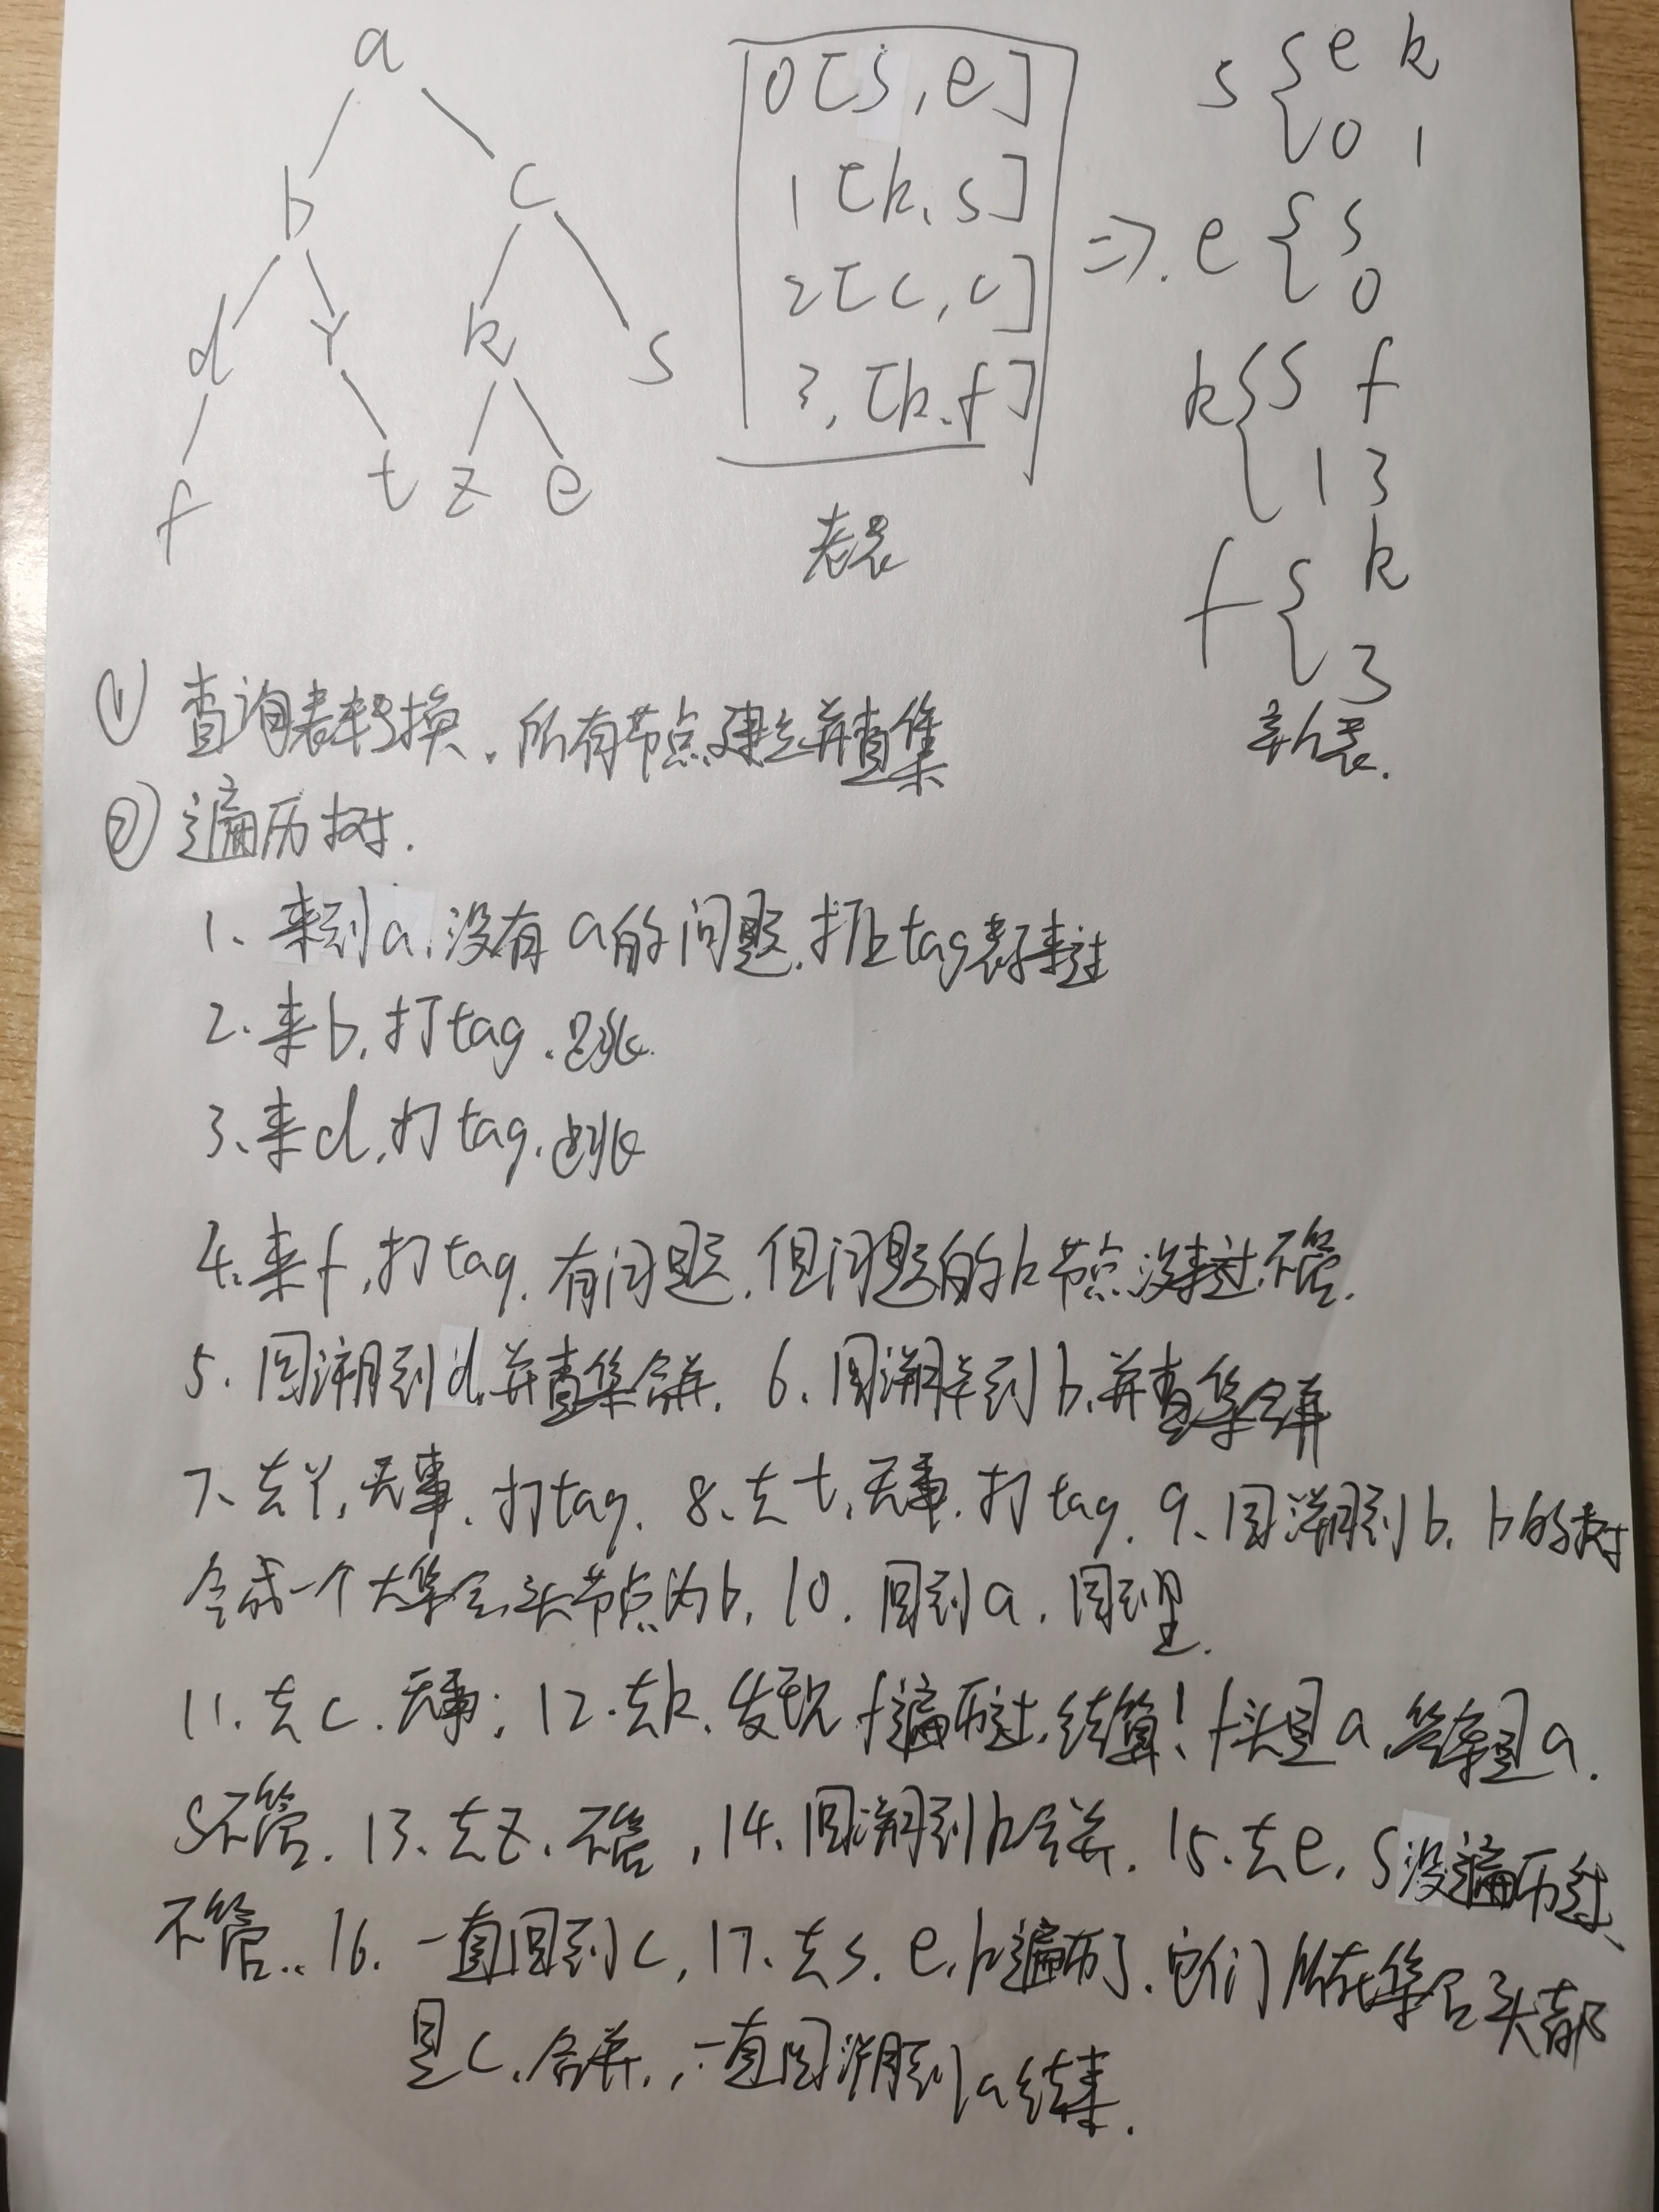 a
b c
d Y k s
f t z e
0[s,e]
1[k,s]
2[c,c]
3,[k,f]
老表
=>.
s { e k
0 1
e { s
0
k { s f
1 3
f { k
3
新表.
① 查询表转换.所有节点建立并查集
② 遍历树.
1、来到a,没有a的问题.打上tag表示来过
2.来b,打tag.跳
3、来d,打tag.跳
4.来f,打tag.有问题.但问题的k节点没来过不管.
5.回溯到d,并查集合并. 6.回溯到b,并查集合并
7、去Y,无事.打tag. 8、去t,无事.打tag. 9、回溯到b. b的树
合成一个大集合,头节点为b. 10.回到a.同理.
11.去c.无事; 12.去k.发现f遍历过,结算!f头是a,答案是a.
s不管. 13、去z.不管, 14、回溯到k合并. 15.去e,s没遍历过
不管.. 16.一直回到c, 17、去s.e,k遍历了.它们所在集合头都
是c,合并.,一直回溯到a结束.